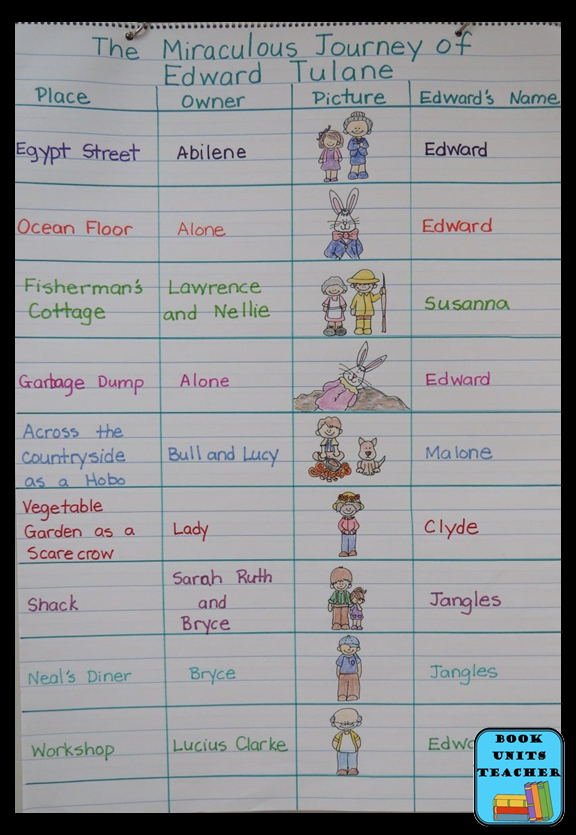 The Miraculous Journey of
Edward Tulane
Place Owner Picture Edward's Name
Egypt Street Abilene Edward
Ocean Floor Alone Edward
Fisherman's Lawrence
Cottage and Nellie Susanna
Garbage Dump Alone Edward
Across the
countryside Bull and Lucy Malone
as a Hobo
Vegetable
Garden as a Lady Clyde
Scarecrow
Sarah Ruth
Shack and Jangles
Bryce
Neal's Diner Bryce Jangles
Workshop Lucius Clarke
BOOK
UNITS
TEACHER